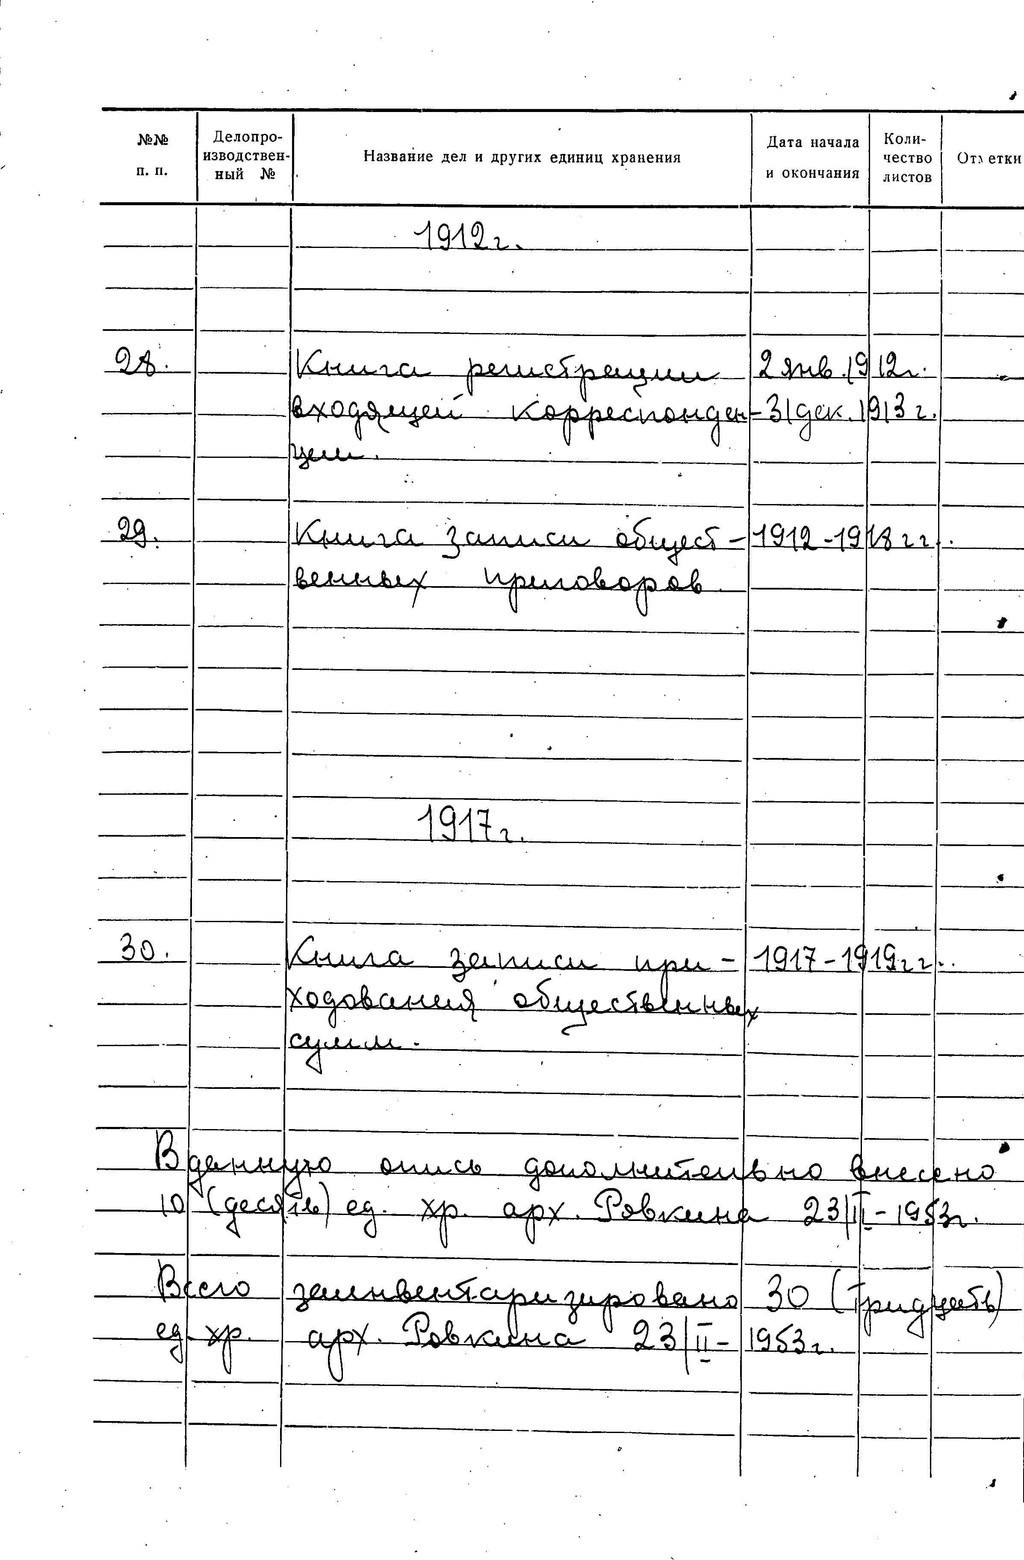 №№ п. п.
Делопро-
изводствен-
ный №
Название дел и других единиц хранения
Дата начала
и окончания
Коли-
чество
листов
От етки
1912 г.
28. Книга регистрации 2 янв. 1912 г.
входящей корреспонден- - 31 дек. 1913 г.
ции.
29. Книга записи общест- 1912-1918 г г.
венных приговоров
1917 г.
30. Книга записи при- 1917-1919 г г.
ходования общественных
сумм.
В данную опись дополнительно внесено
10 (десять) ед. хр. арх. Ровкина 23/II-1953г.
Всего заинвентаризировано 30 (тридцать)
ед. хр. арх. Ровкина 23/II-1953г.